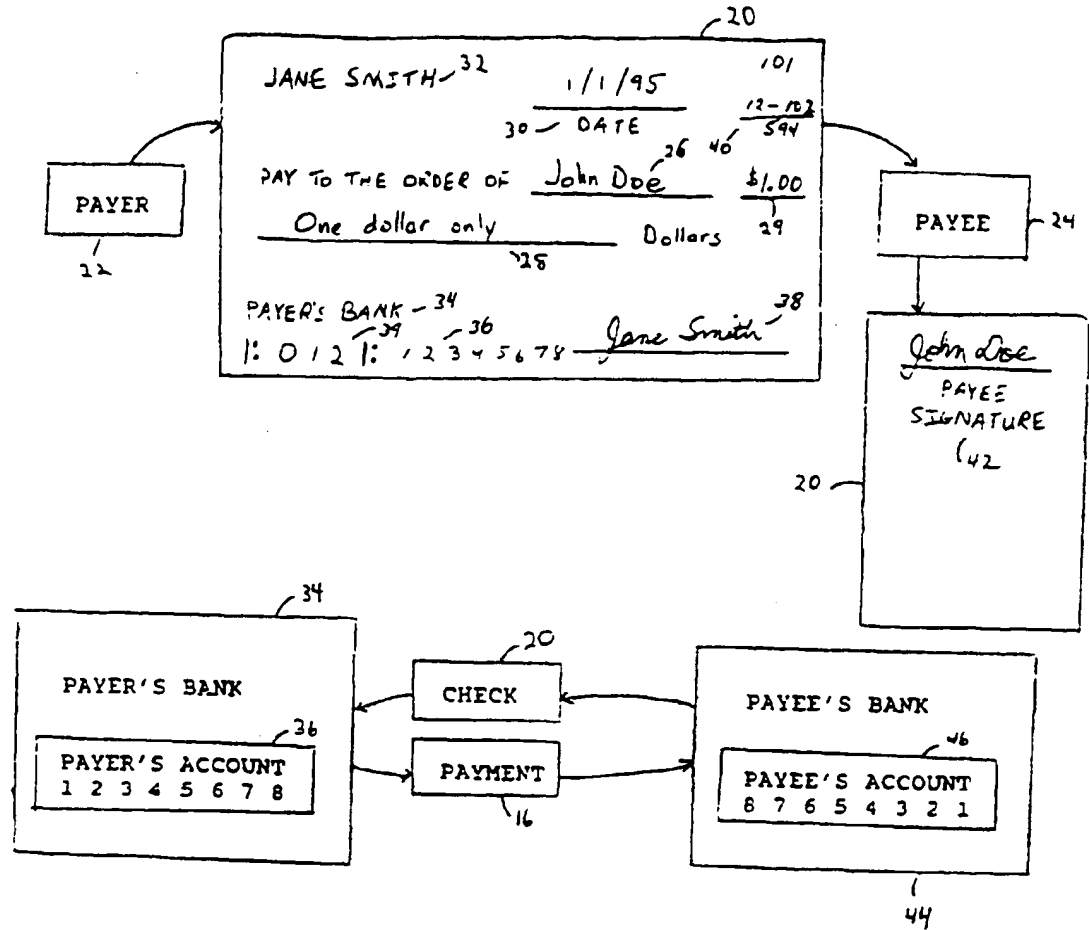 20
JANE SMITH 32 101
1/1/95
30 DATE
12-102
594
40
PAYER
22
PAY TO THE ORDER OF John Doe 26 $1.00
29
One dollar only Dollars
28
PAYEE 24
PAYER'S BANK 34
|: 0 1 2 |: 39 1 2 3 4 5 6 7 8 36 Jane Smith 38
John Doe
PAYEE
SIGNATURE
42
20
34
PAYER'S BANK
36
PAYER'S ACCOUNT
1 2 3 4 5 6 7 8
20
CHECK
PAYMENT
16
PAYEE'S BANK
46
PAYEE'S ACCOUNT
8 7 6 5 4 3 2 1
44